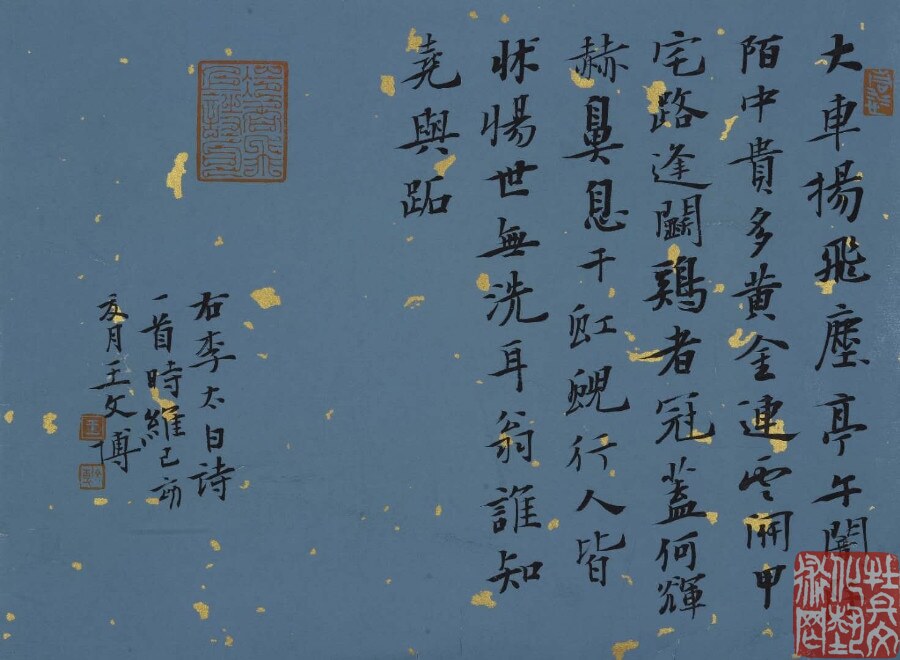 大車揚飛塵亭午闇
陌中貴多黄金連雲開甲
宅路逢鬭鷄者冠蓋何輝
赫鼻息干虹蜺行人皆
怵惕世無洗耳翁誰知
堯與跖
右李太白詩
一首時維己
月王文博